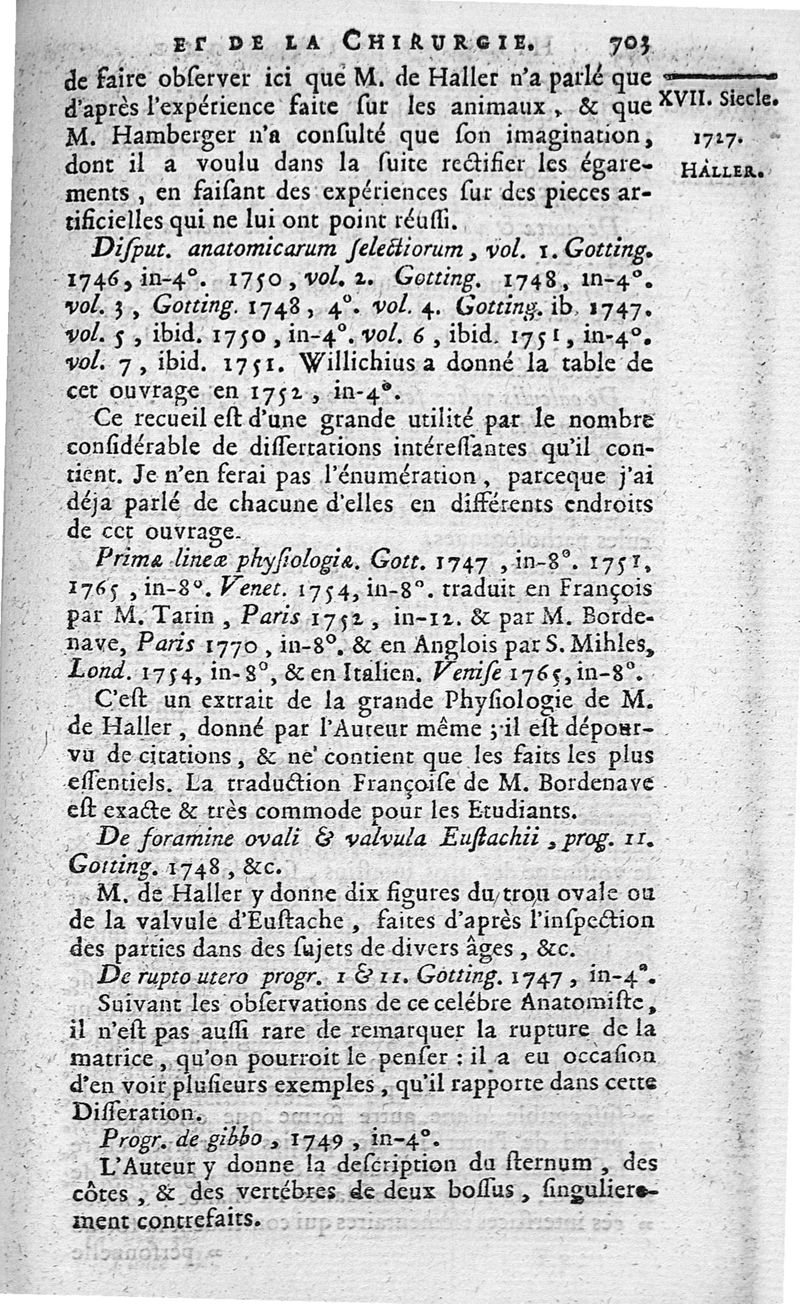 ET DE LA CHIRURGIE. 703
de faire obſerver ici que M. de Haller n'a parlé que
d'après l'expérience faite ſur les animaux, & que
M. Hamberger n'a conſulté que ſon imagination,
dont il a voulu dans la ſuite rectifier les égare-
ments, en faiſant des expériences ſur des pieces ar-
tificielles qui ne lui ont point réuſſi.
XVII. Siecle.
1727.
HALLER.
Diſput. anatomicarum ſelectiorum, vol. 1. Gotting.
1746, in-4°. 1750, vol. 2. Gotting. 1748, in-4°.
vol. 3, Gotting. 1748, 4°. vol. 4. Gotting. ib. 1747.
vol. 5, ibid. 1750, in-4°. vol. 6, ibid. 1751, in-4°.
vol. 7, ibid. 1751. Willichius a donné la table de
cet ouvrage en 1752, in-4°.
Ce recueil eſt d'une grande utilité par le nombre
conſidérable de diſſertations intéreſſantes qu'il con-
tient. Je n'en ferai pas l'énumération, parceque j'ai
déja parlé de chacune d'elles en différents endroits
de cet ouvrage.
Primæ lineæ phyſiologiæ. Gott. 1747, in-8°. 1751,
1765, in-8°. Venet. 1754, in-8°. traduit en François
par M. Tarin, Paris 1752, in-12. & par M. Borde-
nave, Paris 1770, in-8°. & en Anglois par S. Mihles,
Lond. 1754, in-8°, & en Italien. Veniſe 1765, in-8°.
C'eſt un extrait de la grande Phyſiologie de M.
de Haller, donné par l'Auteur même ; il eſt dépour-
vu de citations, & ne contient que les faits les plus
eſſentiels. La traduction Françoiſe de M. Bordenave
eſt exacte & très commode pour les Etudiants.
De foramine ovali & valvula Euſtachii, prog. 11.
Gotting. 1748, &c.
M. de Haller y donne dix figures du trou ovale ou
de la valvule d'Euſtache, faites d'après l'inſpection
des parties dans des ſujets de divers âges, &c.
De rupto utero progr. 1 & 11. Gotting. 1747, in-4°.
Suivant les obſervations de ce celébre Anatomiſte,
il n'eſt pas auſſi rare de remarquer la rupture de la
matrice, qu'on pourroit le penſer : il a eu occaſion
d'en voir pluſieurs exemples, qu'il rapporte dans cette
Diſſeration.
Progr. de gibbo, 1749, in-4°.
L'Auteur y donne la deſcription du ſternum, des
côtes, & des vertébres de deux boſſus, ſinguliere-
ment contrefaits.